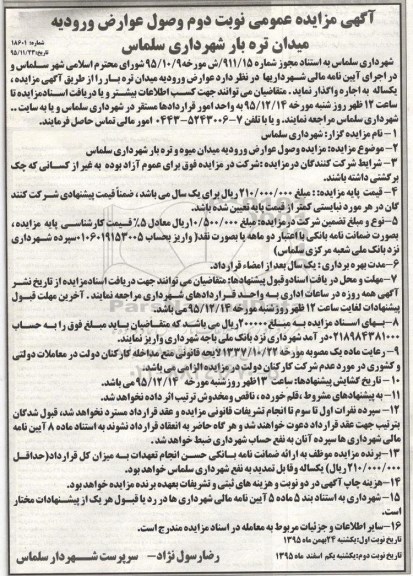 آگهی مزایده عمومی نوبت دوم وصول عوارض ورودیه
میدان تره بار شهرداری سلماس
شماره: ۱۸۶۰۱
تاریخ: ۹۵/۱۱/۲۳
شهرداری سلماس به استناد مجوز شماره ۹۱۱/۱۵/ش مورخه ۹۵/۱۰/۹ شورای محترم اسلامی شهر سلماس و
در اجرای آیین نامه مالی شهرداریها در نظر دارد عوارض ورودیه میدان تره بار را از طریق آگهی مزایده ،
یکساله به اجاره واگذار نماید . متقاضیان می توانند جهت کسب اطلاعات بیشتر و یا دریافت اسناد مزایده تا
ساعت ۱۲ ظهر روز شنبه مورخه ۹۵/۱۲/۱۴ به واحد امور قراردادها مستقر در شهرداری سلماس و یا به سایت ..
شهرداری سلماس مراجعه نمایند . و یا با تلفن ۷-۵۲۴۳۰۰۶-۰۴۴۳ امور مالی تماس حاصل فرمایند.
۱- نام مزایده گزار: شهرداری سلماس
۲- موضوع مزایده: مزایده وصول عوارض ورودیه میدان میوه و تره بار شهرداری سلماس
۳- شرایط شرکت کنندگان در مزایده : شرکت در مزایده فوق برای عموم آزاد بوده به غیر از کسانی که چک
برگشتی داشته باشند.
۴- قیمت پایه مزایده: : مبلغ ۲۱۰/۰۰۰/۰۰۰ ریال برای یک سال می باشد ، ضمناً قیمت پیشنهادی شرکت کنند
گان در هر مورد نبایستی کمتر از قیمت پایه تعیین شده باشد.
۵- نوع و مبلغ تضمین شرکت در مزایده: مبلغ ۱۰/۵۰۰/۰۰۰ ریال معادل ۵٪ قیمت کارشناسی پایه مزایده ،
بصورت ضمانت نامه بانکی با اعتبار دو ماهه یا بصورت نقد( واریز بحساب ۰۱۰۶۰۱۹۱۵۳۰۰۵ سپرده شهرداری
نزد بانک ملی شعبه مرکزی سلماس)
۶- مدت بهره برداری : یک سال بعد از امضاء قرارداد.
۷- مهلت و محل دریافت اسناد و قبول پیشنهادها: متقاضیان می توانند جهت دریافت اسناد مزایده از تاریخ نشر
آگهی همه روزه در ساعات اداری به واحد قراردادهای شهرداری مراجعه نمایند . آخرین مهلت قبول
پیشنهادات لغایت ساعت ۱۲ ظهر روز شنبه مورخه ۹۵/۱۲/۱۴ می باشد.
۸- بهای اسناد مزایده به مبلغ ۲۰۰۰۰۰ ریال می باشد که متقاضیان باید مبلغ فوق را به حساب
۰۲۱۸۹۸۴۳۸۱۰۰۰ در آمد شهرداری نزد بانک ملی باجه شهرداری واریز نمایند.
۹- رعایت ماده یک مصوبه مورخه ۱۳۳۷/۱۰/۲۲ لایحه قانونی منع مداخله کارکنان دولت در معاملات دولتی
و کشوری در مورد عدم شرکت کارکنان دولت در مزایده الزامی می باشد.
۱۰- تاریخ گشایش پیشنهادها: ساعت ۱۳ ظهر روز شنبه مورخه ۹۵/۱۲/۱۴ می باشد.
۱۱- به پیشنهادهای مشروط ، قلم خورده ، ناقص و مخدوش ترتیب اثر داده نخواهد شد.
۱۲- سپرده نفرات اول تا سوم تا انجام تشریفات قانونی مزایده و عقد قرارداد مسترد نخواهد شد، قبول شدگان
بترتیب جهت عقد قرارداد دعوت خواهند شد و هر گاه حاضر به انعقاد قرارداد نشوند به استناد ماده ۸ آیین نامه
مالی شهرداری ها سپرده آنان به نفع حساب شهرداری ضبط خواهد شد.
۱۳- برنده مزایده موظف به ارائه ضمانت نامه بانکی حسن انجام تعهدات به میزان کل قرارداد(حداقل
۲۱۰/۰۰۰/۰۰۰ ریال) یکساله و قابل تمدید به نفع شهرداری سلماس خواهد بود.
۱۴- هزینه چاپ آگهی در دو نوبت و هزینه های ثبتی و تشریفات بعهده برنده مزایده خواهد بود.
۱۵- شهرداری به استناد بند ۵ ماده ۵ آیین نامه مالی شهرداری ها در رد یا قبول هر یک از پیشنهادات مختار
است.
۱۶- سایر اطلاعات و جزئیات مربوط به معامله در اسناد مزایده مندرج است.
تاریخ نوبت اول: یکشنبه ۲۴ بهمن ماه ۱۳۹۵
تاریخ نوبت دوم: یکشنبه یکم اسفند ماه ۱۳۹۵
رضا رسول نژاد- سرپرست شهردار سلماس